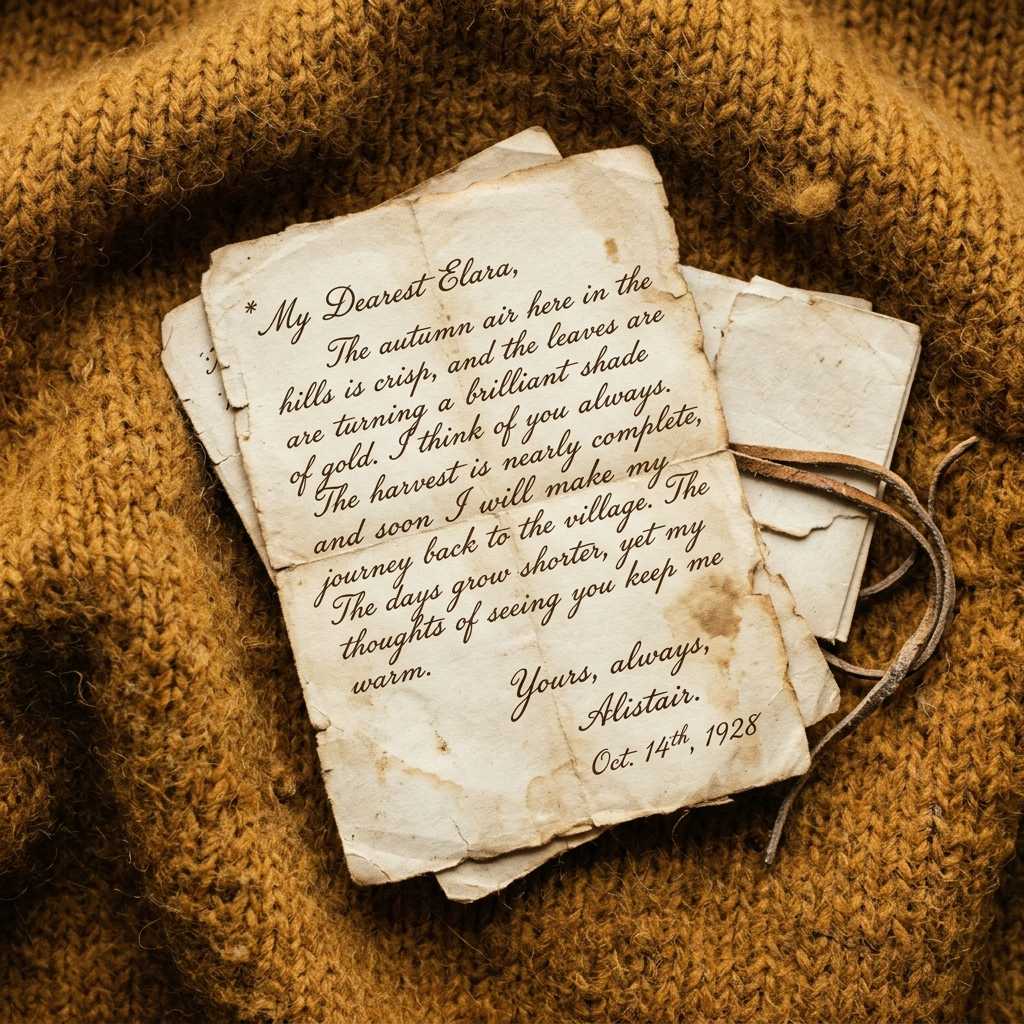 * My Dearest Elara,
The autumn air here in the
hills is crisp, and the leaves are
are turning a brilliant shade
of gold. I think of you always.
The harvest is nearly complete,
and soon I will make my
journey back to the village. The
The days grow shorter, yet my
thoughts of seeing you keep me
warm.
Yours, always,
Alistair.
Oct. 14th, 1928